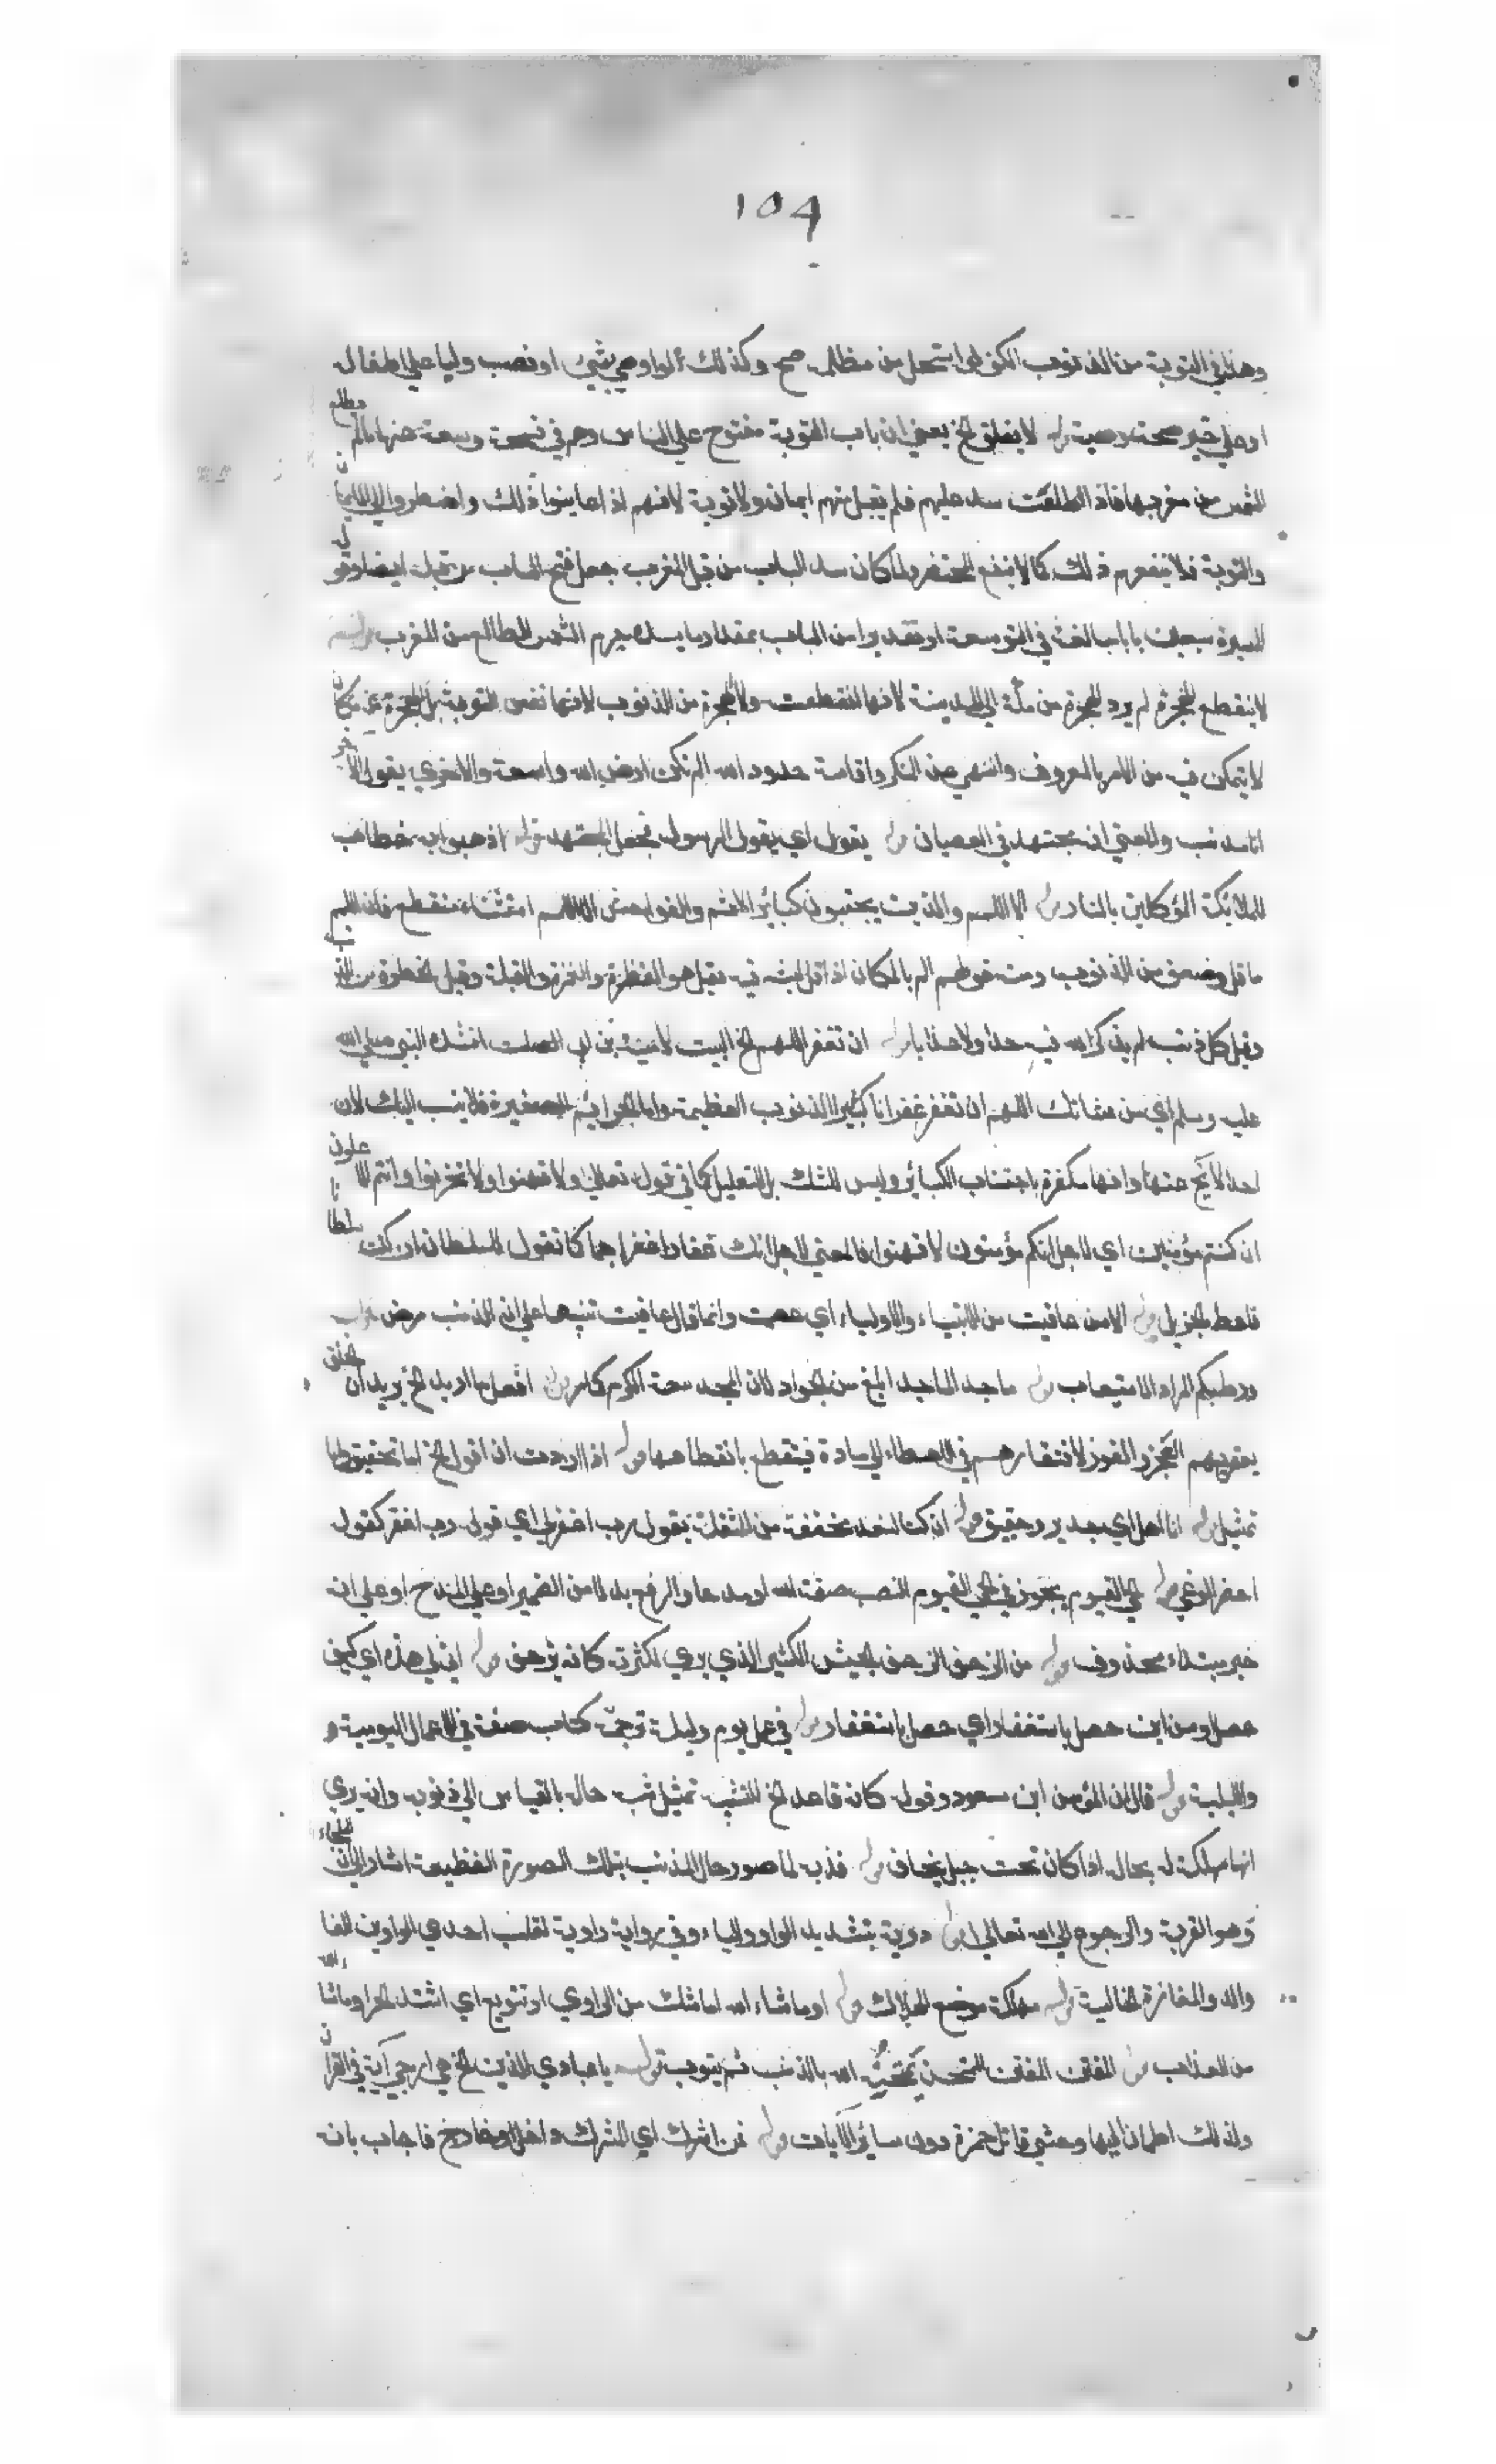 ١٥٩
وهذا في التوبة من الذنوب لكن لو استحل من مظلمة صح وكذلك لو اوصى بشيء او نصب وليا على اطفاله
او على خير صحت وصيته قوله لا يغلق الخ يعني ان باب التوبة مفتوح على الناس وهم في فسحة وسعة عنها مالم تطلع
الشمس من مغربها فاذا طلعت سد عليهم فلم يقبل منهم ايمان ولا توبة لانهم اذا عاينوا ذلك واضطروا الى الايمان
والتوبة فلا ينفعهم ذلك كما لا ينفع المحتضر ولما كان سد الباب من قبل المغرب جعل فتح الباب من قبله ايضا وقوله
مسيرة سبعين بابا مبالغة في التوسعة او تقديرا من الباب بمقدار ما يسده جرم الشمس الطالع من المغرب قوله
لا ينقطع الهجرة لم يرد الهجرة من مكة الى المدينة لانها انقطعت ولا الهجرة من الذنوب لانها نفس التوبة بل الهجرة عن مكان
لا يتمكن فيه من الامر بالمعروف والنهي عن المنكر واقامة حدود الله الم تكن ارض الله واسعة والاخرى يقول الآخر
انا مذنب والمعنى انه مجتهد في العصيان قوله يقول اي يقول الرسول قوله اذهبوا به خطاب
للملائكة المؤكلين بالنار قوله الا اللمم والذين يجتنبون كبائر الاثم والفواحش الا اللمم استثناء منقطع فان اللمم
ما قل وصغر من الذنوب ومنه قولهم الم بالمكان اذا قل لبثه فيه وقيل هو النظرة والغمزة والقبلة وقيل الخطرة من الذنب
وقيل كل ذنب لم يذكر الله فيه حدا ولا عذابا قوله ان تغفر اللهم الخ البيت لامية بن ابي الصلت انشده النبي صلى الله
عليه وسلم اي من شانك اللهم ان تغفر غفرانا كثيرا للذنوب العظيمة واما الجرائم الصغيرة فلا ينسب اليك لان
احدا لا يخ عنها وانها مكفرة باجتناب الكبائر وليس للشك بل للتعليل كما في قوله تعالى ولا تهنوا ولا تحزنوا وانتم الاعلون
ان كنتم مؤمنين اي لاجل انكم مؤمنون لا تهنوا فالمعنى لاجل انك غفار اغفر جما كما تقول للسلطان ان كنت سلطانا
فاعط الجزيل قوله الا من عافيت من الانبياء والاولياء اي عصمت وانما قال عافيت تنبيها على ان الذنب مرض قوله
ورطبكم المراد الاستيعاب قوله ماجد الماجد ابلغ من الجواد لان المجد سعة الكرم كما مر قوله افعل ما اريد الخ يريد ان الخلق
يعتريهم العجز والفوز لافتقارهم في العطاء الى مادة فينقطع بانقطاعها قوله اذا اردت ان اقول الخ اما تحقيق واما
تمثيل قوله انا اهل اي جدير وحقيق قوله ان كنا لنعد مخففة من المثقلة يقول رب اغفر لي اي قوله رب اغفر كقوله
احضر الوغى قوله الحي القيوم يجوز في الحي القيوم النصب صفة لله او مدحا والرفع بدلا من الضمير او على المدح او على انه
خبر مبتداء محذوف قوله من الزحف الزحف الجيش الكثير الذي يرى لكثرته كانه يزحف قوله انى لي هذه اي كيف
حصل ومن اين حصل باستغفار اي حصل باستغفار قوله في عمل يوم وليلة ترجمة كتاب صنفه في الاعمال اليومية و
والليلية قوله قال ان المؤمن ابن مسعود وقوله كانه قاعد الخ للتشبيه تمثيل شبه حاله بالقياس الى ذنوبه وانه يرى
انها مهلكة له بحاله اذا كان تحت جبل يخاف قوله فذب لما صور حال المذنب بتلك الصورة الفظيعة اشار الى ان الملجاء
هو التوبة والرجوع الى الله تعالى قوله دوية بتشديد الواو والياء وفي رواية داوية لقلب احدى الواوين الفا
والدو المفازة الخالية قوله مهلكة موضع الهلاك قوله او ما شاء الله اما شك من الراوي او تنويع اي اشتد الحر او ما شاء الله
من العذاب قوله المفتن المفتن الممتحن يمتحنه الله بالذنب ثم يتوب قوله يا عبادي الذين الخ هي ارجى آية في القرآن
ولذلك اطمان اليها وحشي قاتل حمزة دون سائر الآيات قوله فمن اشرك اي المشرك داخل او خارج فاجاب بانه